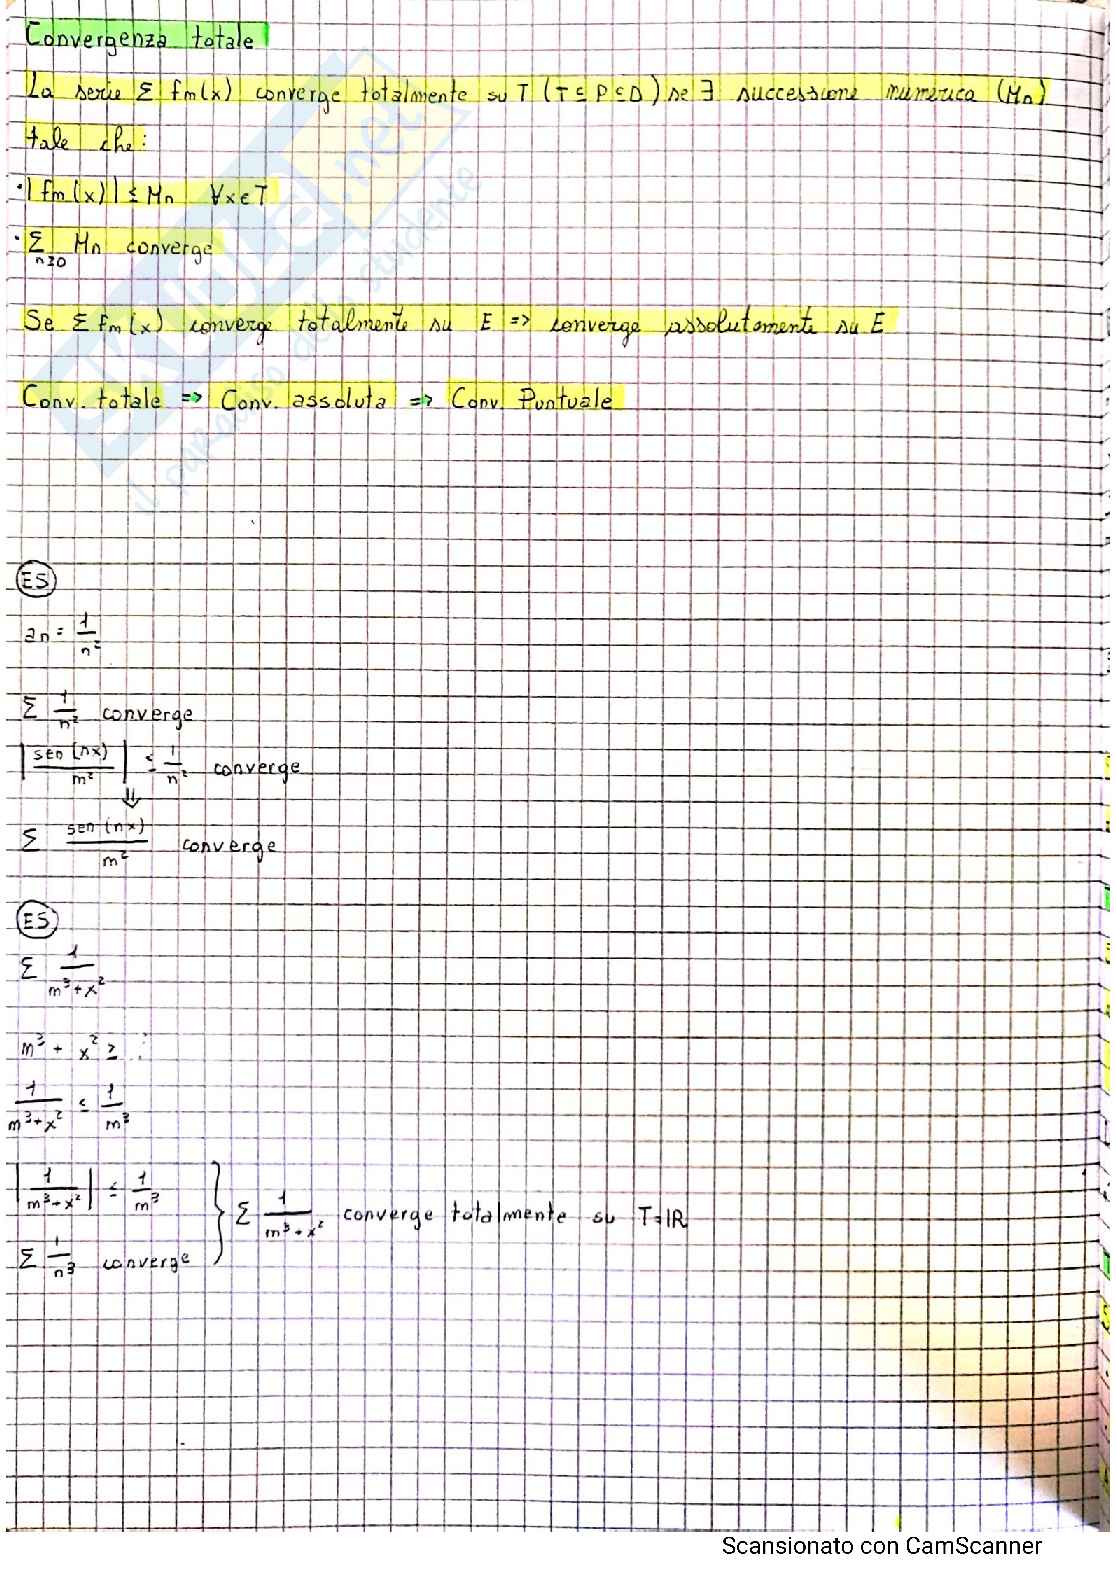 Convergenza totale
La serie Σ fm(x) converge totalmente su T (T ⊆ P ⊆ D) se ∃ successione numerica (Mn)
tale che:
• |fm(x)| ≤ Mn ∀x∈T
• Σ n≥0 Mn converge
Se Σ fm(x) converge totalmente su E => converge assolutamente su E
Conv. totale => Conv. assoluta => Conv. Puntuale
ES
an = 1/n²
Σ 1/n² converge
|sen(nx)/m²| ≤ 1/n² converge
⇓
Σ sen(nx)/m² converge
ES
Σ 1/(m³+x²)
m³ + x² ≥
1/(m³+x²) ≤ 1/m³
|1/(m³+x²)| ≤ 1/m³
Σ 1/n³ converge
} Σ 1/(m³+x²) converge totalmente su T=ℝ
SKUOLA.net
il paradiso dello studente
Scansionato con CamScanner